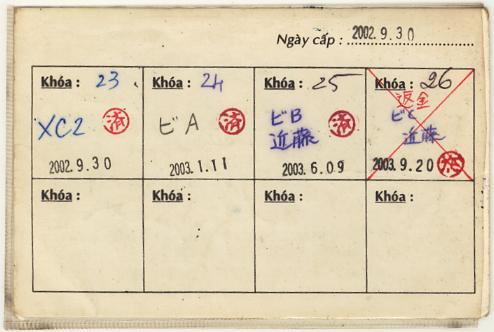 Ngày cấp : 2002.9.30
Khóa : 23
XC2 済
2002.9.30
Khóa : 24
ビA 済
2003.1.11
Khóa : 25
ビB 済
近藤
2003.6.09
Khóa : 26
返金
ビC
近藤
2003.9.20
Khóa :
Khóa :
Khóa :
Khóa :